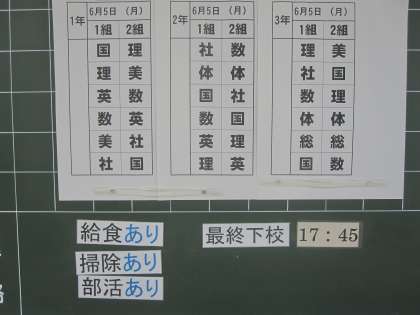 1年 6月5日 (月)
1組 2組
国 理
理 美
英 数
数 英
美 社
社 国
2年 6月5日 (月)
1組 2組
社 数
体 体
国 社
数 国
英 理
理 英
3年 6月5日 (月)
1組 2組
理 美
社 国
数 理
体 体
総 総
国 数
給食あり
掃除あり
部活あり
最終下校 17:45